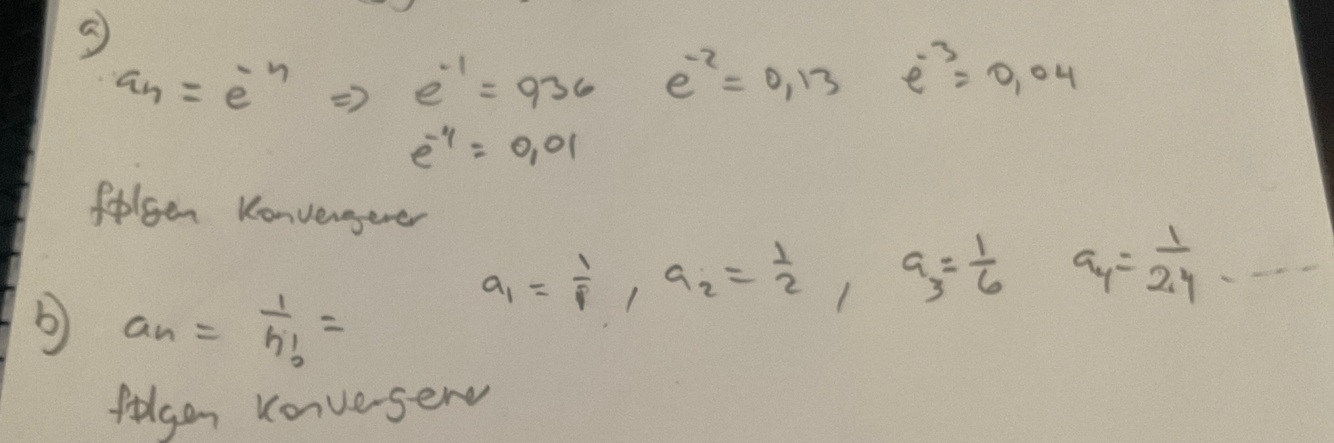 a)
aₙ = e⁻ⁿ ⇒ e⁻¹ = 0,36 e⁻² = 0,13 e⁻³ = 0,04
e⁻⁴ = 0,01
følgen konvergerer
a₁ = 1/1, a₂ = 1/2, a₃ = 1/6 a₄ = 1/24 ----
b) aₙ = 1/n! =
følgen konvergerer